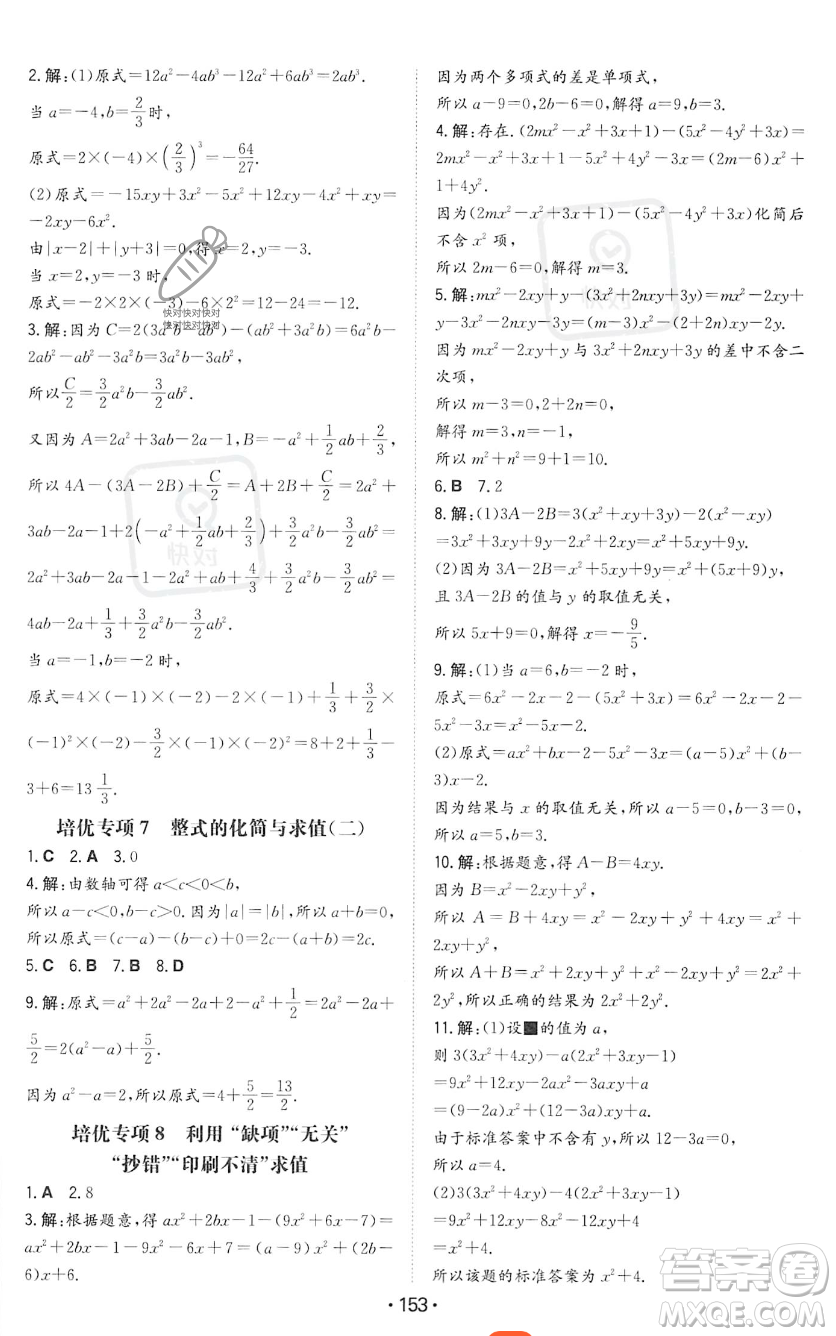 2.解:(1)原式=12a²-4ab³-12a²+6ab³=2ab³.
当 a=-4,b=2/3时,
原式=2×(-4)×(2/3)³=-64/27.
(2)原式=-15xy+3x²-5x²+12xy-4x²+xy=
-2xy-6x².
由|x-2|+|y+3|=0,得 x=2,y=-3.
当 x=2,y=-3时,
原式=-2×2×(-3)-6×2²=12-24=-12.
快对快对快对
快对快对快对
3.解:因为 C=2(3a²b-ab²)-(ab²+3a²b)=6a²b-
2ab²-ab²-3a²b=3a²b-3ab²,
所以C/2=3/2a²b-3/2ab².
又因为 A=2a²+3ab-2a-1,B=-a²+1/2ab+2/3,
所以 4A-(3A-2B)+C/2=A+2B+C/2=2a²+
3ab-2a-1+2(-a²+1/2ab+2/3)+3/2a²b-3/2ab²=
2a²+3ab-2a-1-2a²+ab+4/3+3/2a²b-3/2ab²=
4ab-2a+1/3+3/2a²b-3/2ab².
当 a=-1,b=-2时,
原式=4×(-1)×(-2)-2×(-1)+1/3+3/2×
(-1)²×(-2)-3/2×(-1)×(-2)²=8+2+1/3-
3+6=13 1/3.
培优专项7 整式的化简与求值(二)
1.C 2.A 3.0
4.解:由数轴可得 a<c<0<b,
所以 a-c<0,b-c>0.因为|a|=|b|,所以 a+b=0,
所以原式=(c-a)-(b-c)+0=2c-(a+b)=2c.
5.C 6.B 7.B 8.D
9.解:原式=a²+2a-2a²-4a+3a²+1/2=2a²-2a+
5/2=2(a²-a)+5/2.
因为 a²-a=2,所以原式=4+5/2=13/2.
培优专项8 利用“缺项”“无关”
“抄错”“印刷不清”求值
1.A 2.8
3.解:根据题意,得 ax²+2bx-1-(9x²+6x-7)=
ax²+2bx-1-9x²-6x+7=(a-9)x²+(2b-
6)x+6.
因为两个多项式的差是单项式,
所以 a-9=0,2b-6=0,解得 a=9,b=3.
4.解:存在.(2mx²-x²+3x+1)-(5x²-4y²+3x)=
2mx²-x²+3x+1-5x²+4y²-3x=(2m-6)x²+
1+4y².
因为(2mx²-x²+3x+1)-(5x²-4y²+3x)化简后
不含 x²项,
所以 2m-6=0,解得 m=3.
5.解:mx²-2xy+y-(3x²+2nxy+3y)=mx²-2xy+
y-3x²-2nxy-3y=(m-3)x²-(2+2n)xy-2y.
因为 mx²-2xy+y与3x²+2nxy+3y的差中不含二
次项,
所以 m-3=0,2+2n=0,
解得 m=3,n=-1.
所以 m²+n²=9+1=10.
6.B 7.2
8.解:(1)3A-2B=3(x²+xy+3y)-2(x²-xy)
=3x²+3xy+9y-2x²+2xy=x²+5xy+9y.
(2)因为 3A-2B=x²+5xy+9y=x²+(5x+9)y,
且 3A-2B的值与y的取值无关,
所以 5x+9=0,解得 x=-9/5.
9.解:(1)当 a=6,b=-2时,
原式=6x²-2x-2-
5x²-3x=x²-5x-2.
(2)原式=ax²+bx-2-5x²-3x=(a-5)x²+(b-3)x-2.
因为结果与 x的取值无关,所以 a-5=0,b-3=0,
所以 a=5,b=3.
10.解:根据题意,得 A-B=4xy.
因为 B=x²-2xy+y²,
所以 A=B+4xy=x²-2xy+y²+4xy=x²+
2xy+y²,
所以 A+B=x²+2xy+y²+x²-2xy+y²=2x²+
2y²,所以正确的结果为 2x²+2y².
11.解:(1)设■的值为a,
则 3(3x²+4xy)-a(2x²+3xy-1)
=9x²+12xy-2ax²-3axy+a
=(9-2a)x²+(12-3a)xy+a.
由于标准答案中不含有 xy,所以 12-3a=0,
所以 a=4.
(2)3(3x²+4xy)-4(2x²+3xy-1)
=9x²+12xy-8x²-12xy+4
=x²+4.
所以该题的标准答案为 x²+4.
快对
快对
答案圈
·153·